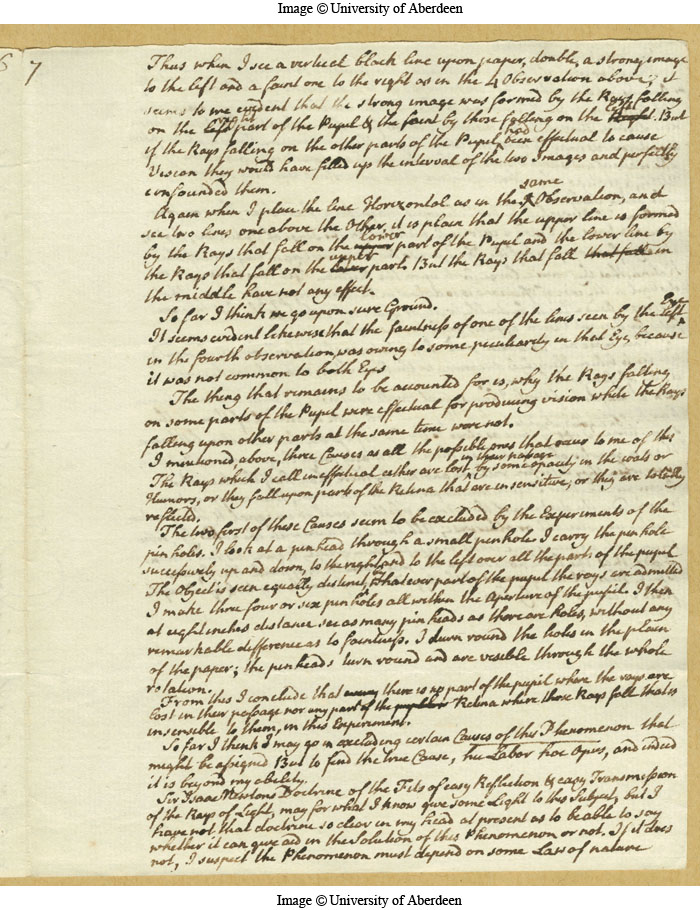 Image © University of Aberdeen
7
Thus when I see a vertical black line upon paper, double, a strong image
to the left and a faint one to the right as in the 4 Observation above; it
seems to me evident that the strong image was formed by the Rays falling
on the left right part of the Pupil & the faint by those falling on the Right left. But
if the Rays falling on the other parts of the Pupil had been effectual to cause
Vision they would have filled up the interval of the two Images and perfectly
confounded them.
Again when I place the line Horizontal as in the same Observation, and
see two lines one above the Other, it is plain that the upper line is formed
by the Rays that fall on the upper lower part of the Pupil and the lower line by
the Rays that fall on the lower upper part. But the Rays that fall that fall in
the middle have not any effect.
So far I think we go upon sure Ground.
It seems evident likewise that the faintness of one of the lines seen by the left Eye
in the fourth observation, was owing to some peculiarity in that Eye, because
it was not common to both Eyes
The thing that remains to be accounted for is, why the Rays falling
on some parts of the Pupil were effectual for producing vision while the Rays
falling upon other parts at the same time were not.
I mentioned, above, three Causes as all the possible ones that occur to me of this
The Rays which I call ineffectual either are lost in their passage by some opacity in the coats or
Humors, or they fall upon parts of the Retina that are insensitive, or they are totally
reflected.
The two first of these Causes seem to be excluded by the Experiments of the
pin holes. I look at a pinhead through a small pinhole I carry the pin hole
successively up and down, to the right and to the left over all the parts of the pupil
The Object is seen equally distinct, by whatever part of the pupil the rays are admitted
I make three four or six pin holes all within the Aperture of the pupil. I then
at eight inches distance see as many pin heads as there are holes, without any
remarkable difference as to faintness. I turn round the holes in the plain
of the paper; the pinheads turn round and are visible through the whole
rotation.
From this I conclude that there is no part of the pupil where the rays are
lost in their passage nor any part of the Retina where those Rays fall that is
insensible to them, in this Experiment.
So far I think I may go in excluding certain Causes of this Phenomenon that
might be assigned But to find the true Cause, hic Labor hoc Opus, and indeed
it is beyond my ability.
Sir Isaac Newtons Doctrine of the Fits of easy Reflection & easy Transmission
of the Rays of Light, may for what I know give some Light to this Subject, but I
have not that doctrine so clear in my head at present as to be able to say
whether it can give aid in the solution of this Phenomenon or not. If it does
not, I suspect the Phenomenon must depend on some Law of nature
Image © University of Aberdeen